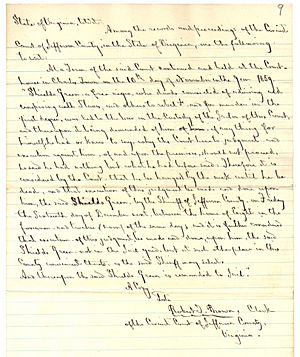 9
State of Virginia, to wit:
Among the records and proceedings of the Circuit
Court of Jefferson County, in the State of Virginia, are the following
to wit:
At a Term of the Circuit Court continued and held at the Court
house in Charles Town on the 10th day of November in the year 1859
"Shields Green a free negro, who stands convicted of advising and
conspiring with Slaves, and others to rebel & and for murder in the
first degree, was led to the bar in the Custody of the Jailor of this Court,
and thereupon it being demanded of him if any thing for
himself he had or knew to say why the Court should not
execution against him of and upon the premises, should not proceed,
he said he had nothing but what he had before said. Therefore it is
considered by the Court that he be hanged by the neck until he be
dead, and that execution of this judgment be made and done upon
him, the said Shields Green, by the Sheriff of Jefferson County on Friday
the Sixteenth day of December next, between the hours of Eight in the
forenoon and twelve (noon) of the same day; and it is further ordered
that execution of this judgment be made and done, upon him, the said
Shields Green not in the Jail yard, but at such other place in this
County convenient thereto, as the said Sheriff may select.
And thereupon the said Shields Green is remanded to Jail."
A Copy
Robert T. Brown, Clerk
of the Circuit Court of Jefferson County,
Virginia.